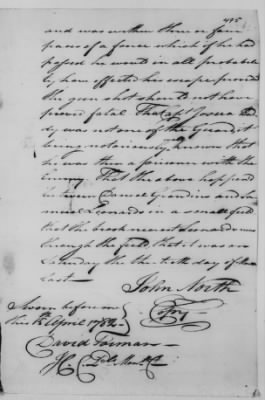 495
and was within three or four
paces of a fence which if he had
passed he would in all probabi
lity have effected his escape provided
the gun shot should not have
proved fatal. That Capt Josua Hud
dy was not one of the Guard it
being notoriously known that
he was then a prisoner with the
Enemy. That the above happend
between Daniel Grandins and Sa
muel Leonards in a small field
that the brook nearest Leonards run
through the field, that it was on
Saturday the thirtieth day of March
last
John North
Copy
Sworn before me
this April 1782
David Forman